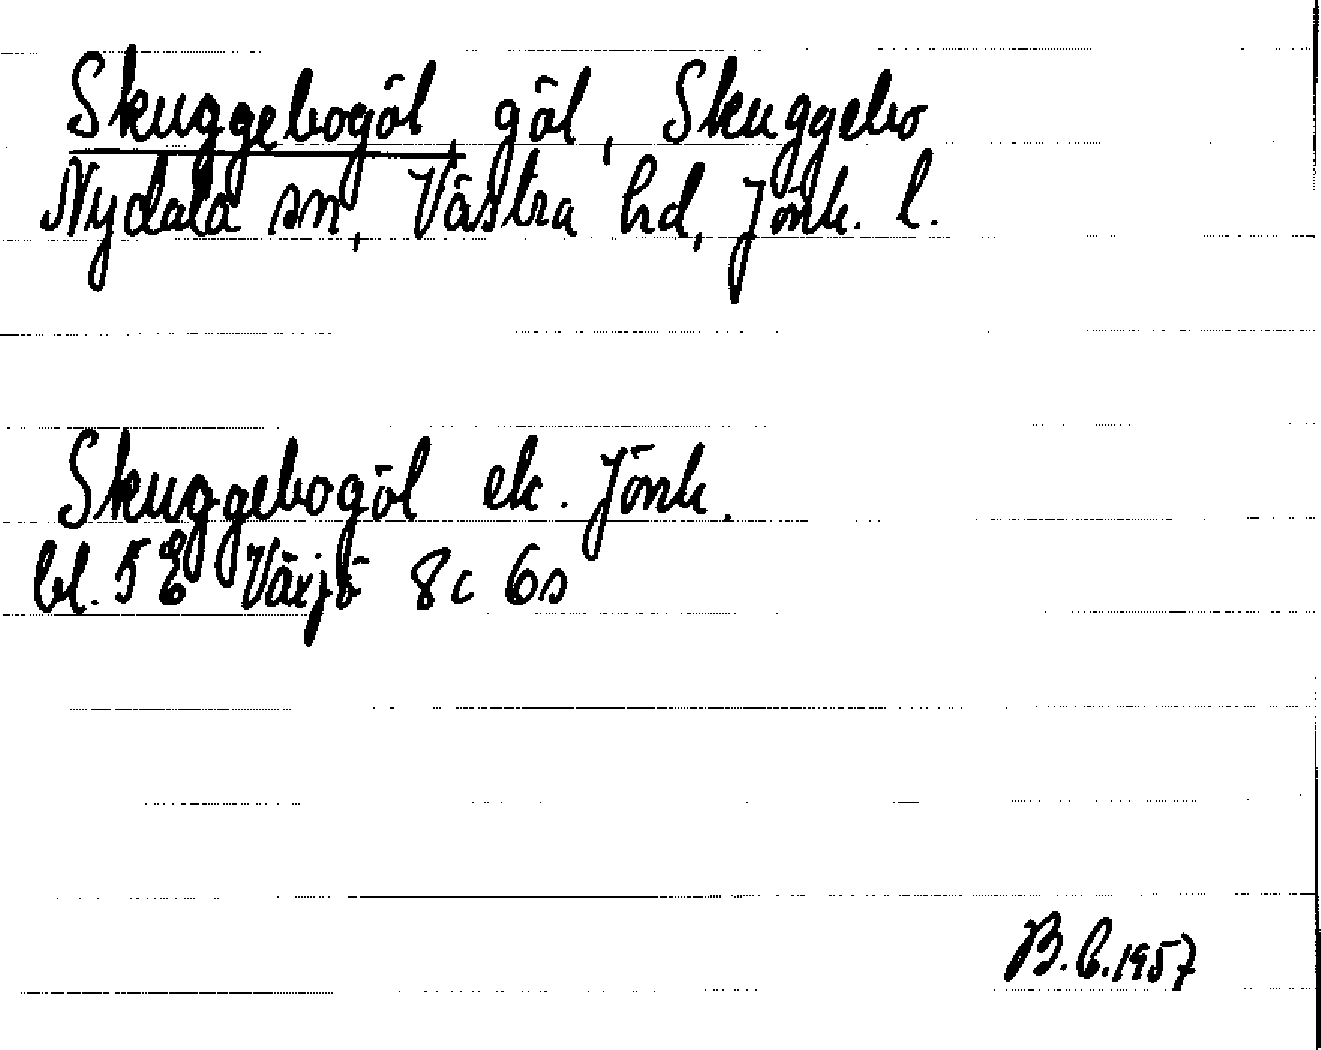 Skuggebogöl, göl, Skuggebo
Nydala sn, Västra hd, Jönk. l.
Skuggebogöl ek. Jönk.
bl. 5 E Växjö 8c 6s
B.E. 1957